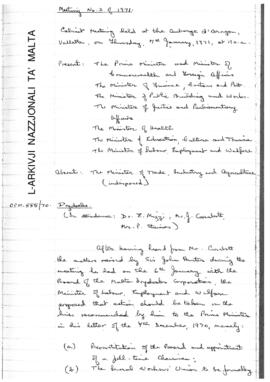 Meeting No. 2 of 1971.
Cabinet Meeting held at the Auberge d'Aragon,
Valletta, on Thursday, 7th January, 1971, at
L-ARKIVJI NAZZJONALI TA' MALTA
Present: The Prime Minister and Minister of
Commonwealth and Foreign Affairs
The Minister of Finance, Customs and Port
The Minister of Public Building and Works
The Minister of Justice and Parliamentary
Affairs
The Minister of Health
The Minister of Education, Culture and Tourism
The Minister of Labour, Employment and Welfare
Absent: The Minister of Trade, Industry and Agriculture
(indisposed)
OPM.555/70. Drydocks
(In attendance: Dr. Mizzi, Mr. J.
Mr. P.
After having heard from Mr.
the matters raised by Sir John Hunter during the
meeting he had on the 6th January with the
Board of the Malta Drydocks Corporation, the
Minister of Labour, Employment and Welfare
proposed that action should be taken on the
lines recommended by him to the Prime Minister
in his letter of the December, 1970, namely:
(a) Reconstitution of the Board and appointment
of a full-time Chairman;
(b) The General Workers' Union to be formally